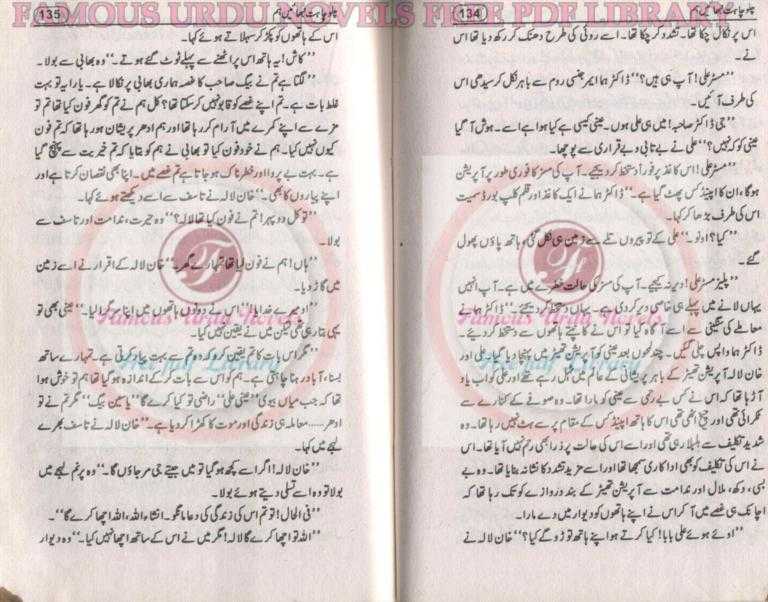 FAMOUS URDU NOVELS FREE PDF LIBRARY
134
چلو چاہت نبھائیں ہم
اس پر نکال چکا تھا۔ تشدد کر چکا تھا۔ اسے روئی کی طرح دھنک کر رکھ دیا تھا اس
نے۔
”مسٹر علی! آپ ہی ہیں؟“ ڈاکٹر ہما ایمرجنسی روم سے باہر نکل کر سیدھی اس
کی طرف آئیں۔
”جی ڈاکٹر صاحبہ! میں ہی علی ہوں۔ عینی کیسی ہے کیا ہوا ہے اسے۔ ہوش آ گیا
عینی کو کہ نہیں؟“ علی نے بے تابی و بے قراری سے پوچھا۔
”مسٹر علی! اس کاغذ پر فوراً دستخط کر دیجیے۔ آپ کی مسز کا فوری طور پر آپریشن
ہو گا، ان کا اپینڈکس پھٹ گیا ہے۔“ ڈاکٹر ہما نے ایک کاغذ اور قلم کلپ بورڈ سمیت
اس کی طرف بڑھا کر کہا۔
”کیا؟ اونو۔“ علی کے تو پیروں تلے سے زمین ہی نکل گئی، ہاتھ پاؤں پھول
گئے۔
”پلیز مسٹر علی! دیر نہ کیجیے۔ آپ کی مسز کی حالت خطرے میں ہے۔ آپ انہیں
یہاں لانے میں پہلے ہی خاصی دیر کر دی ہے۔ یہاں دستخط کر دیجیے۔“ ڈاکٹر ہما نے
معاملے کی سنگینی سے اسے آگاہ کیا تو اس نے کانپتے ہاتھوں سے دستخط کر دیئے۔
ڈاکٹر ہما واپس چلی گئیں۔ چند لمحوں بعد عینی کو آپریشن تھیٹر میں پہنچا دیا گیا۔ علی اور
خان لالہ آپریشن تھیٹر کے باہر پریشانی کے عالم میں ٹہل رہے تھے اور علی کو اب یاد
آ رہا تھا کہ اس نے کس بے رحمی سے عینی کو مارا تھا۔ وہ صوفے کے کنارے سے
ٹکرائی تھی اور چیخ اٹھی تھی اس کا ہاتھ اپینڈکس کے مقام پر سے ہٹ نہیں رہا تھا۔ وہ
شدید تکلیف سے بلبلا رہی تھی اور اسے اس کی حالت پر ذرا بھی رحم نہیں آیا تھا۔ اس
نے اس کی تکلیف کو بھی اداکاری سمجھا تھا اور اسے مزید تشدد کا نشانہ بنایا تھا۔ وہ بے
بسی، دکھ، ملال اور ندامت سے آپریشن تھیٹر کے بند دروازے کو تک رہا تھا کہ
اچانک ہی غصے میں آ کر اس نے اپنے ہاتھوں کو دیوار میں دے مارا۔
”اوئے ہوئے علی بابا! کیا کرتے ہو اپنے ہاتھ تو ڑو گے کیا؟“ خان لالہ نے
135
چلو چاہت نبھائیں ہم
اس کے ہاتھوں کو پکڑ کر سہلاتے ہوئے کہا۔
”کاش! یہ ہاتھ اس پر اٹھنے سے پہلے ٹوٹ گئے ہوتے۔“ وہ بھائی سے بولا۔
”لگتا ہے تم نے بیگ صاحب کا غصہ ہماری بھابی پر نکالا ہے۔ یارا یہ تو بہت
غلط بات ہے۔ تم اپنے غصے کو قابو نہیں کر سکتا تھا؟ کل ہم نے تم کو گھر فون کیا تھا تم تو
مزے سے اپنے کمرے میں آرام کر رہا تھا اور ہم ادھر پریشان ہو رہا تھا کہ تم فون
کیوں نہیں کیا۔ ہم نے خود فون کیا تو بھابی نے ہم کو بتایا کہ تم خیریت سے پہنچ گیا
ہے۔ بہت بے پروا اور خطرناک ہو جاتا ہے تم غصے میں۔ اپنا بھی نقصان کرتا ہے اور
اپنے پیاروں کا بھی۔“ خان لالہ نے تاسف سے اسے دیکھتے ہوئے کہا۔
”تو کل دوپہر! تم نے فون کیا تھا لالہ؟“ وہ حیرت، ندامت اور تاسف سے
بولا۔
”ہاں! ہم نے فون کیا تھا تمہارے گھر۔“ خان لالہ کے اقرار نے اسے زمین
میں گاڑ دیا۔
”او میرے خدایا!“ اس نے دونوں ہاتھوں میں اپنا سر گرا لیا۔“ عینی بھی تو
یہی بتا رہی تھی لیکن میں نے یقین نہیں کیا۔
”مگر اس بات کا تم یقین کرو کہ وہ تم سے بہت پیار کرتی ہے۔ تمہارے ساتھ
بسنا، آباد رہنا چاہتی ہے۔ ہم کو اس سے بات کر کے اندازہ ہو گیا تھا ہم تو خوش ہوا
تھا کہ جب میاں بیوی ”عینی علی“ راضی تو کیا کرے گا ”یاسین بیگ“ مگر تم نے تو
ادھر..... معاملہ ہی زندگی اور موت کا کھڑا کر دیا ہے۔“ خان لالہ نے تاسف بھرے
لہجے میں کہا۔
”خان لالہ! اگر اسے کچھ ہو گیا تو میں جیتے جی مر جاؤں گا۔“ وہ پرنم لہجے میں
بولا تو وہ اسے تسلی دیتے ہوئے بولا۔
”فی الحال! تو تم اس کی زندگی کی دعا مانگو۔ انشاء اللہ، اللہ اچھا کرے گا“۔
”اللہ تو اچھا کرے گا لالہ! مگر میں نے اس کے ساتھ اچھا نہیں کیا۔“ وہ دیوار
Famous Urdu Novels
Free pdf Library
Famous Urdu Novels
Free pdf Library